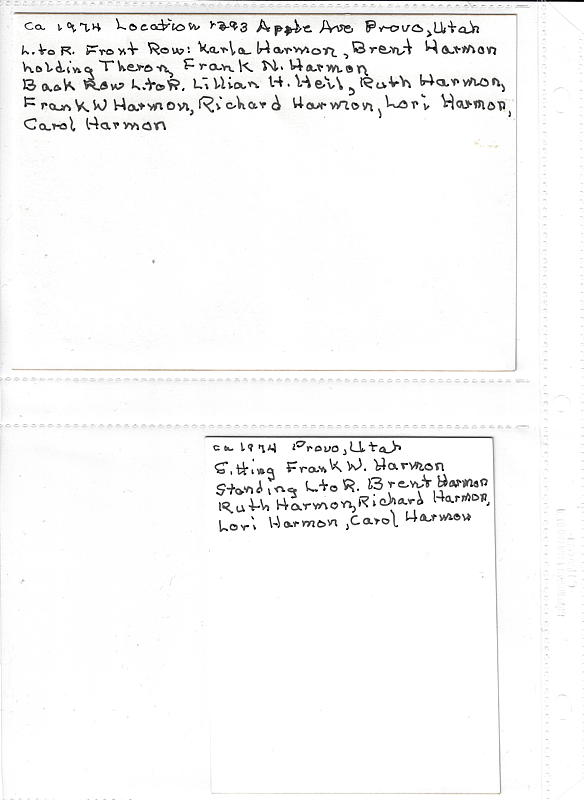 ca 1974 Location 1293 Apple Ave Provo, Utah
L. to R. Front Row: Karla Harmon, Brent Harmon
holding Theron, Frank N. Harmon
Back Row L. to R. Lillian H. Heil, Ruth Harmon,
Frank W Harmon, Richard Harmon, Lori Harmon,
Carol Harmon
ca 1974 Provo, Utah
Sitting Frank W. Harmon
Standing L. to R. Brent Harmon
Ruth Harmon, Richard Harmon,
Lori Harmon, Carol Harmon